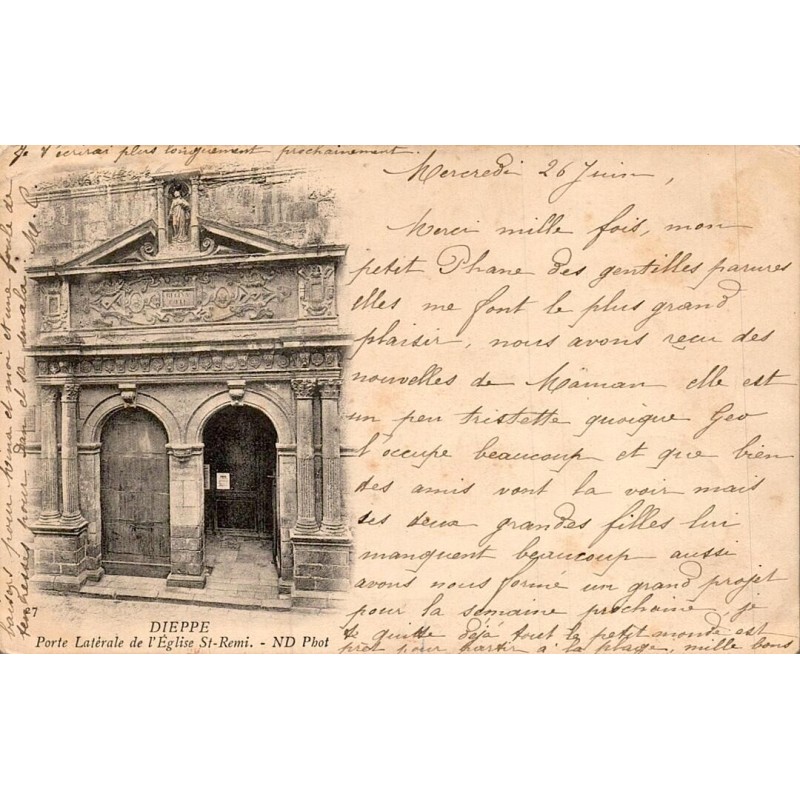 Je t'écrirai plus longuement prochainement.
Mercredi 26 Juin,
Merci mille fois, mon
petit Phane des gentilles parures
elles me font le plus grand
plaisir, nous avons reçu des
nouvelles de Maman elle est
un peu tristette quoique Geo
l'occupe beaucoup et que bien
des amis vont la voir mais
ses deux grandes filles lui
manquent beaucoup aussi
avons nous formé un grand projet
pour la semaine prochaine, je
te quitte déjà tout le petit monde est
prêt pour partir à la plage, mille bons
baisers pour et moi et une foule de
tendresses pour Dan et sa M. P.
27
DIEPPE
Porte Latérale de l'Église St-Remi. - ND Phot